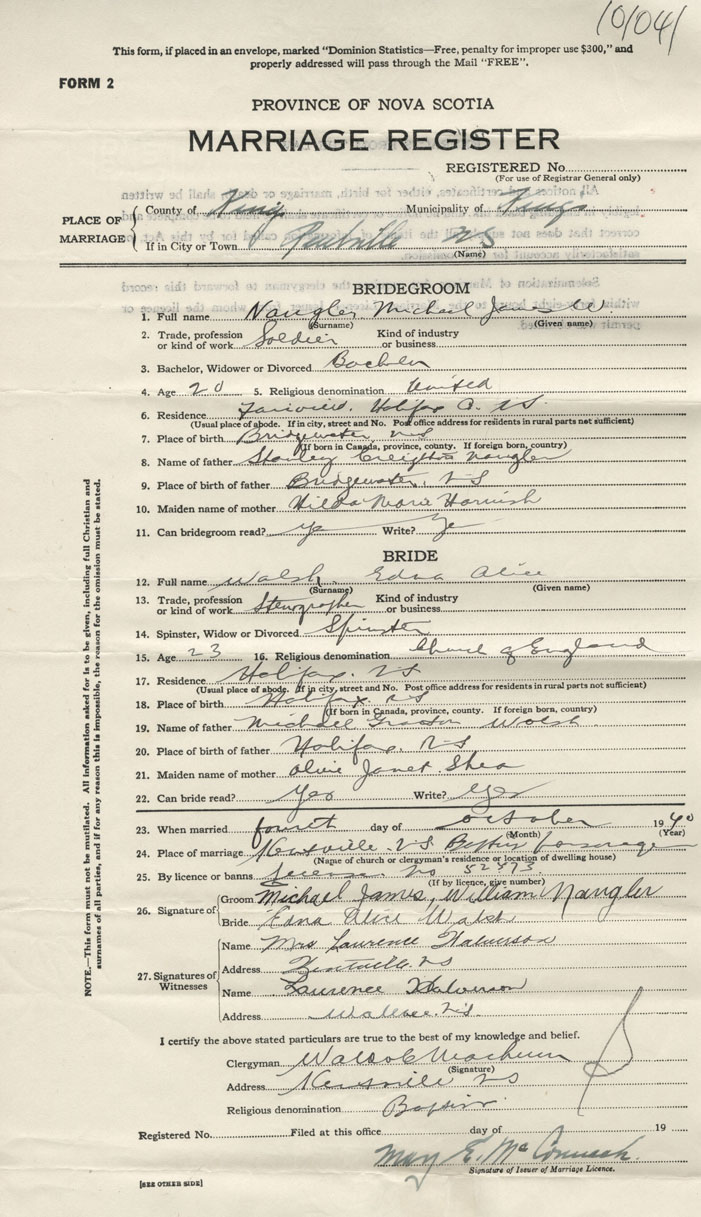 10104
This form, if placed in an envelope, marked "Dominion Statistics—Free, penalty for improper use $300," and
properly addressed will pass through the Mail "FREE".
FORM 2
PROVINCE OF NOVA SCOTIA
MARRIAGE REGISTER
REGISTERED No
(For use of Registrar General only)
PLACE OF MARRIAGE
County of Kings Municipality of Kings
If in City or Town NS
(Name)
BRIDEGROOM
1. Full name Naugler Michael James W.
(Surname) (Given name)
2. Trade, profession or kind of work Soldier Kind of industry or business
3. Bachelor, Widower or Divorced Bachelor
4. Age 20 5. Religious denomination United
6. Residence Fairview, Halifax Co. N.S.
(Usual place of abode. If in city, street and No. Post office address for residents in rural parts not sufficient)
7. Place of birth Bridgewater NS
(If born in Canada, province, county. If foreign born, country)
8. Name of father Stanley Creighton Naugler
9. Place of birth of father Bridgewater, NS
10. Maiden name of mother Hilda Marie Harnish
11. Can bridegroom read? yes Write? Yes
BRIDE
12. Full name Walsh Edna Alice
(Surname) (Given name)
13. Trade, profession or kind of work Stenographer Kind of industry or business
14. Spinster, Widow or Divorced Spinster
15. Age 23 16. Religious denomination Church of England
17. Residence Halifax. N.S
(Usual place of abode. If in city, street and No. Post office address for residents in rural parts not sufficient)
18. Place of birth Halifax NS
(If born in Canada, province, county. If foreign born, country)
19. Name of father Michael Walsh
20. Place of birth of father Halifax. NS
21. Maiden name of mother Olive Janet Shea
22. Can bride read? Yes Write? Yes
23. When married fourth day of October 1940
(Month) (Year)
24. Place of marriage N.S. Baptist Parsonage
(Name of church or clergyman's residence or location of dwelling house)
25. By licence or banns License No 52873
(If by licence, give number)
26. Signature of
Groom Michael James William Naugler
Bride Edna Alice Walsh
27. Signatures of Witnesses
Name Mrs Laurence Halverson
Address NS
Name Laurence Halverson
Address N.S.
I certify the above stated particulars are true to the best of my knowledge and belief.
Clergyman
(Signature)
Address NS
Religious denomination Baptist
Registered No. Filed at this office day of 19
Mary E. McCormack
Signature of Issuer of Marriage Licence.
[SEE OTHER SIDE]
NOTE.—This form must not be mutilated. All information asked for is to be given, including full Christian and
surnames of all parties, and if for any reason this is impossible, the reason for the omission must be stated.